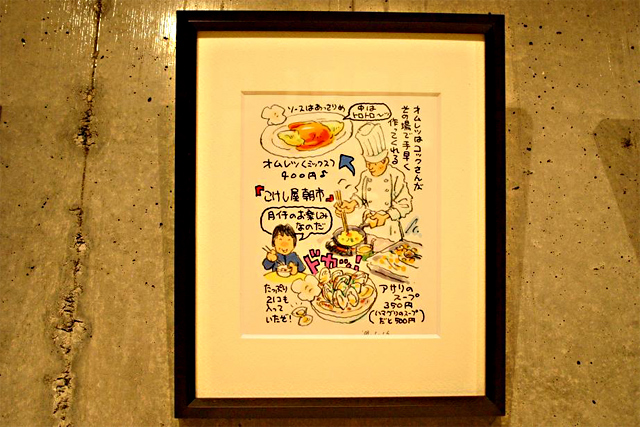 オムレツはコックさんが
その場で手早く
作ってくれる
ソースはあっさりめ
中は
トロトロ〜
オムレツ(ミックス)
400円♪
『こけし屋朝市』
月イチのお楽しみ
なのだ
ドカッ!
たっぷり
21コも
入って
いたぞ!
アサリの
スープ
350円
(ハマグリのスープ
だと500円)